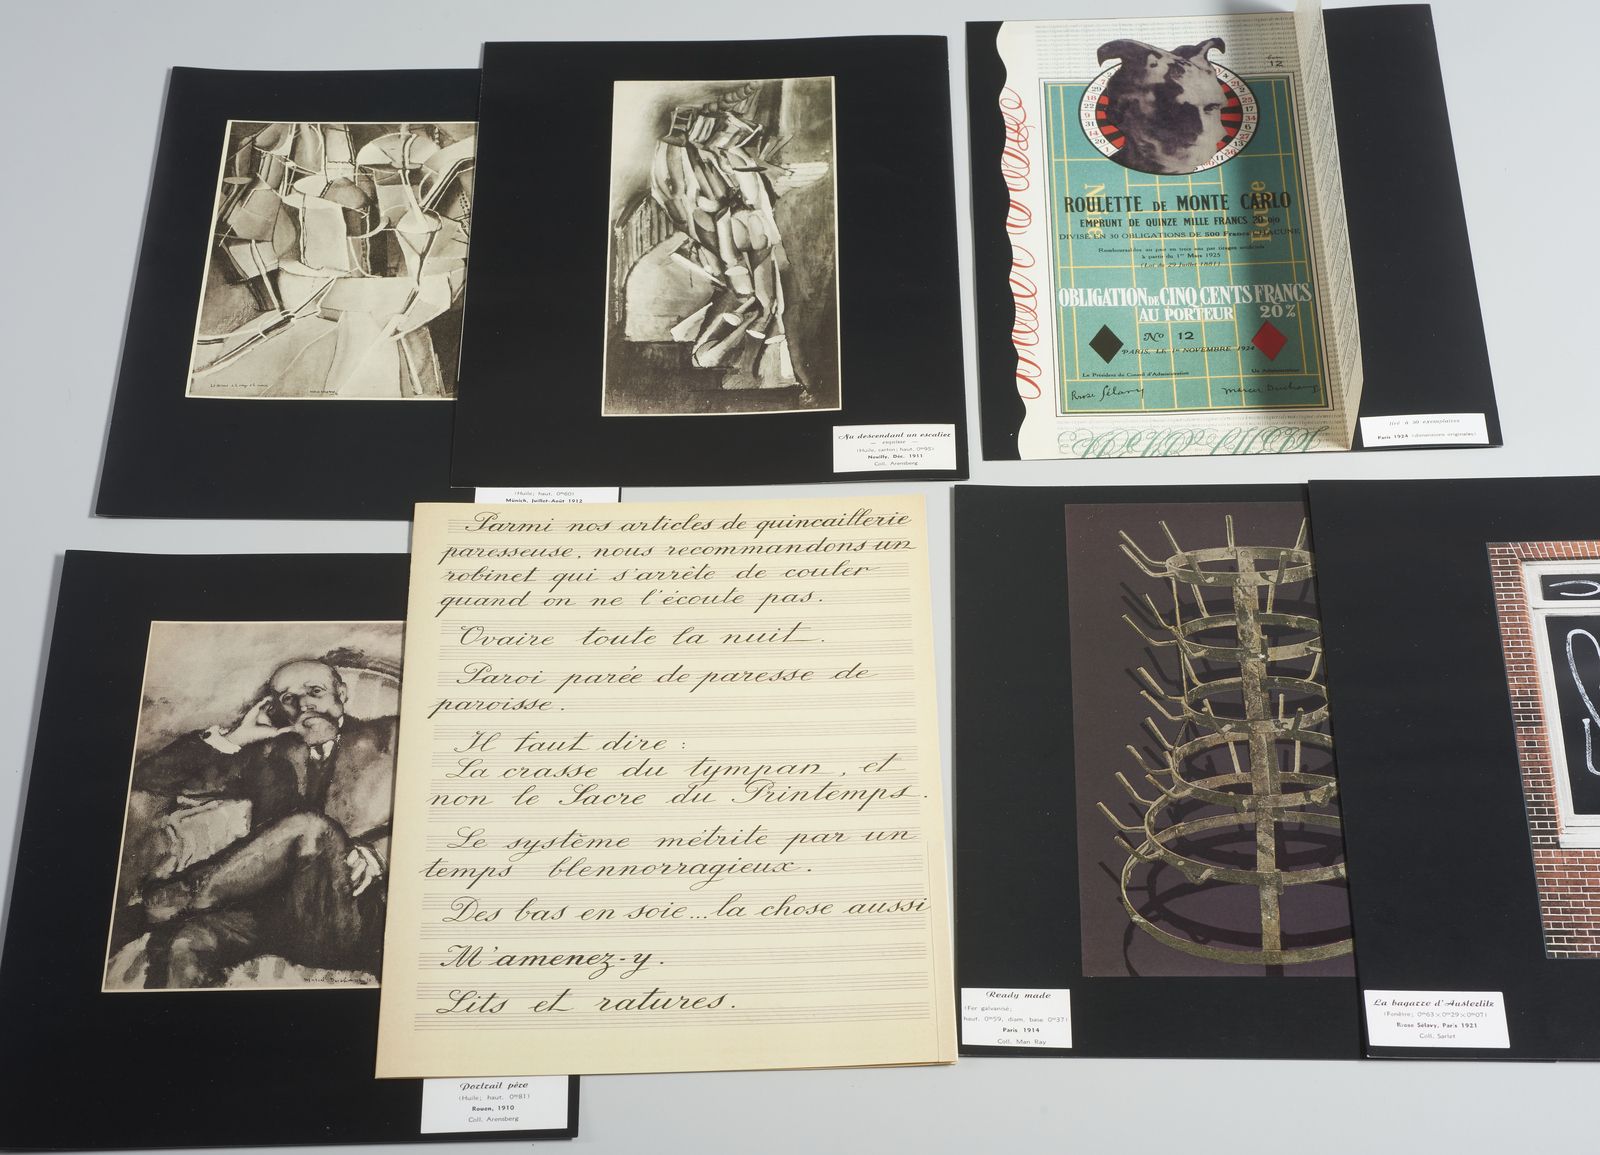 Nu descendant un escalier
— esquisse —
(Huile, carton; haut. 0m95)
Neuilly, Déc. 1911
Coll. Arensberg
(Huile; haut. 0m60)
Munich, Juillet-Août 1912
12
ROULETTE DE MONTE CARLO
EMPRUNT DE QUINZE MILLE FRANCS 20 o/o
DIVISÉ EN 30 OBLIGATIONS DE 500 Francs CHACUNE
Remboursables au pair en trois ans par tirages artificiels
à partir du 1er Mars 1925
(Loi du 29 Juillet 1881)
OBLIGATION DE CINQ CENTS FRANCS
AU PORTEUR 20%
No 12
PARIS, LE 1er NOVEMBRE 1924
Le Président du Conseil d'Administration
Un Administrateur
Rrose Sélavy
Marcel Duchamp
tiré à 30 exemplaires
Paris 1924 (dimensions originales)
Parmi nos articles de quincaillerie
paresseuse, nous recommandons un
robinet qui s'arrête de couler
quand on ne l'écoute pas.
Ovaire toute la nuit.
Paroi parée de paresse de
paroisse.
Il faut dire :
La crasse du tympan, et
non le Sacre du Printemps.
Le système métrite par un
temps blennorragieux.
Des bas en soie...la chose aussi
M'amenez-y.
Lits et ratures.
Portrait père
(Huile; haut. 0m81)
Rouen, 1910
Coll. Arensberg
Ready made
(Fer galvanisé;
haut. 0m59, diam. base 0m37)
Paris 1914
Coll. Man Ray
La bagarre d'Austerlitz
(Fenêtre; 0m63×0m29×0m07)
Rrose Sélavy, Paris 1921
Coll. Sarlet